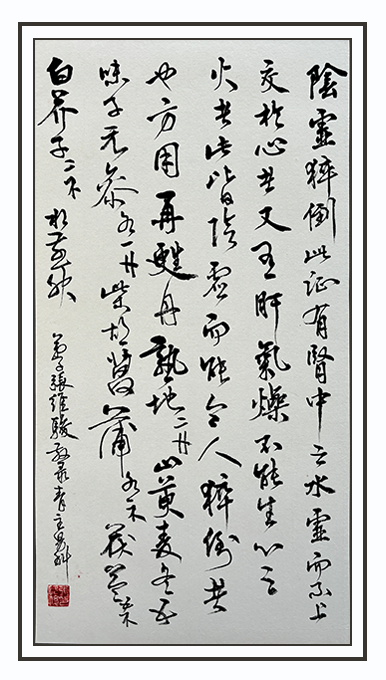 陰虛猝倒此証有腎中之水虛而不上
交於心者又有肝氣燥不能生心之
火者此皆陰虛而能令人猝倒者
也方用再甦丹熟地二兩山萸麥冬五
味子元參各一兩柴胡菖蒲各一錢茯苓五錢
白芥子三錢水煎服 弟子張維駿敬录青主男科